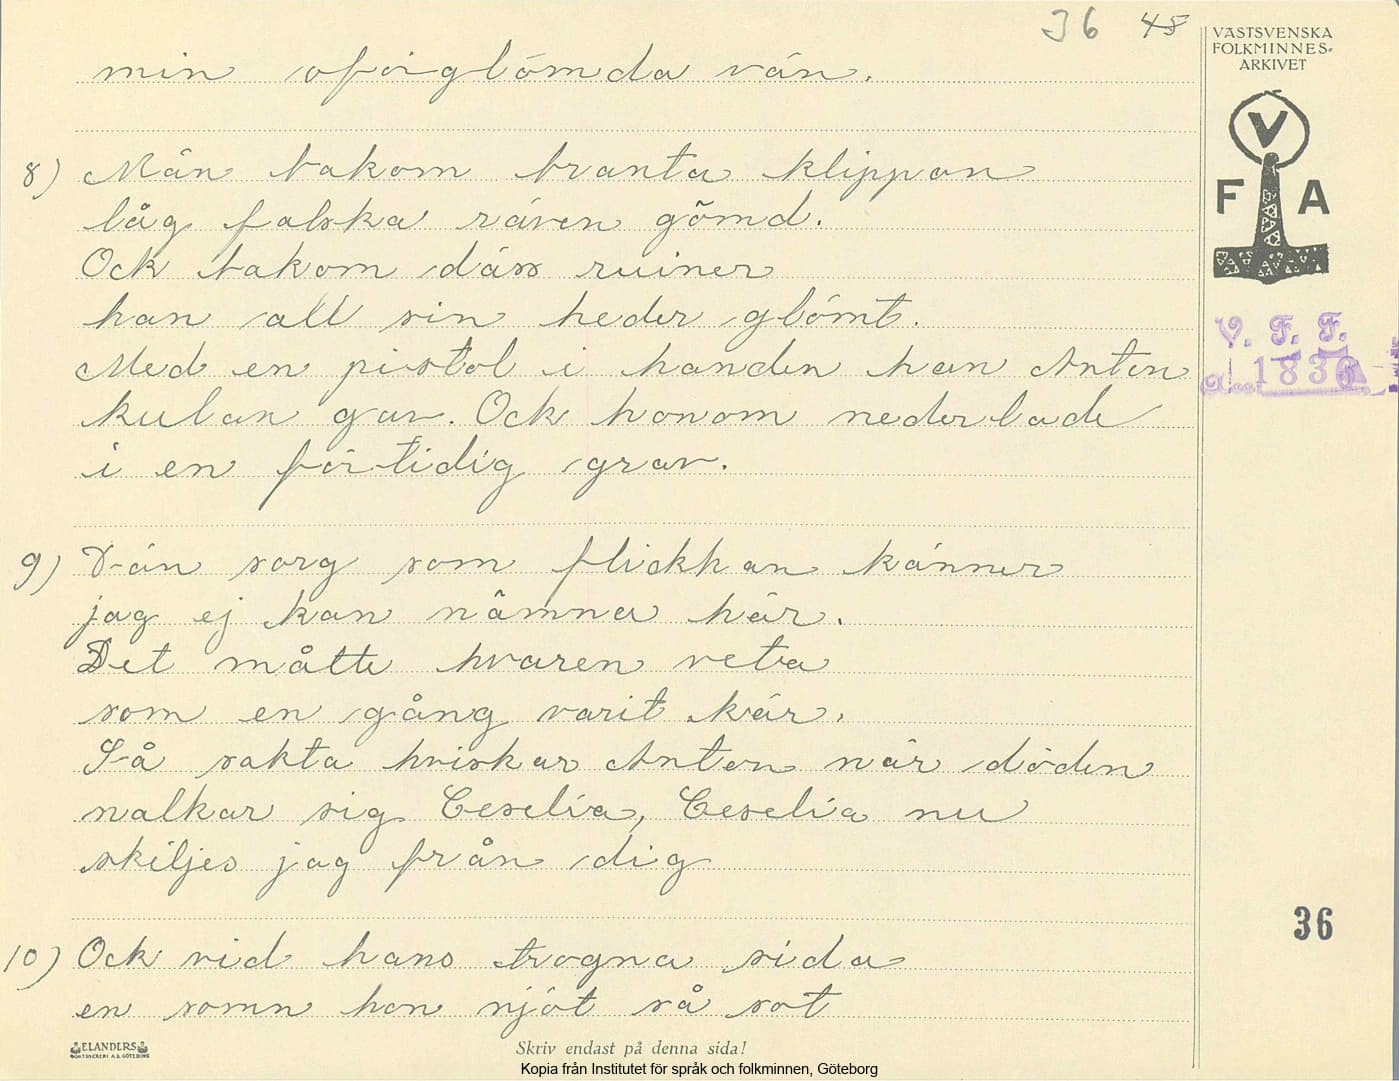 36 45
VÄSTSVENSKA
FOLKMINNES-
ARKIVET
V
F A
V. F. F.
1836
min oförglömda vän.
8) Män bakom branta klippan
låg falska räven gömd.
Ock bakom däss ruiner
han all sin heder glömt.
Med en pistol i handen han Anton
kulan gav. Ock honom nederlade
i en förtidig grav.
9) Dän sorg som flickhan känner
jag ej kan nämna här.
Det måtte hvaren veta
som en gång varit kär.
Så sakta hviskar Anton när döden
nalkar sig Ceselia, Ceselia nu
skiljes jag från dig
36
10) Ock vid hans trogna sida
en somn hon njöt så sot
ELANDERS
Skriv endast på denna sida!
Kopia från Institutet för språk och folkminnen, Göteborg